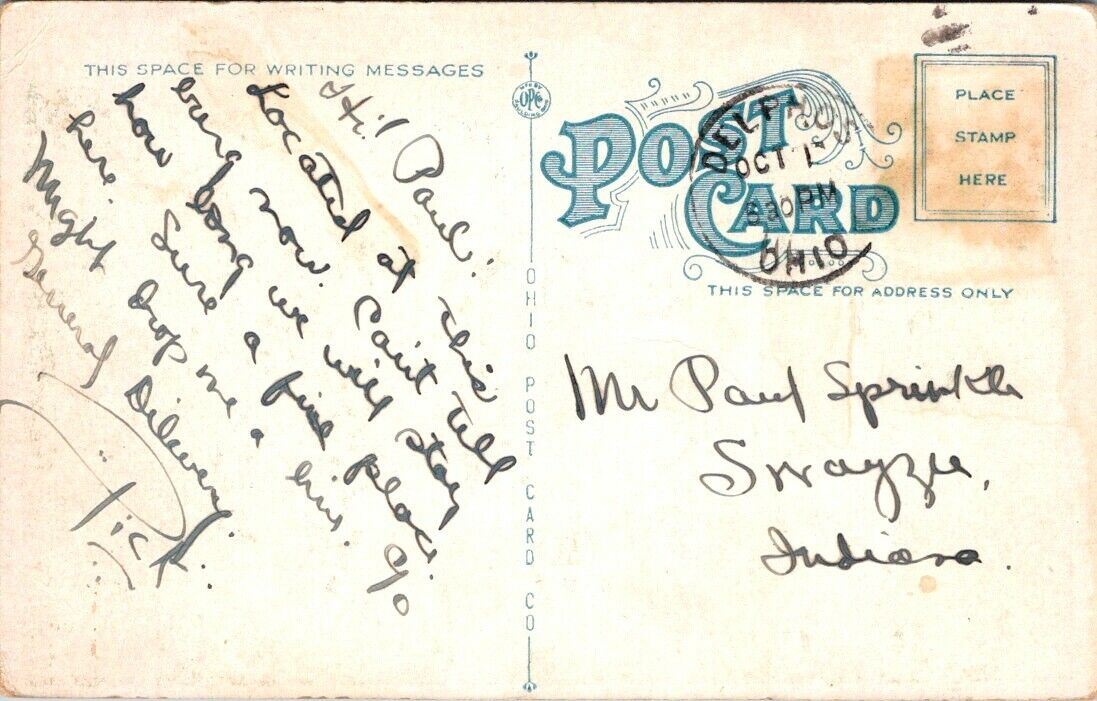 THIS SPACE FOR WRITING MESSAGES
Hi! Paul.
Located at this
burg now. Can't tell
how long we will stay
here. Sure a fine place.
Might drop me a line. c/o
General Dilevery.
"Dick."
OHIO POST CARD CO
OPC
POST CARD
DELPHOS
OCT 1
PM
OHIO
PLACE
STAMP
HERE
THIS SPACE FOR ADDRESS ONLY
Mr Paul Sprinkle
Swayzee,
Indiana.